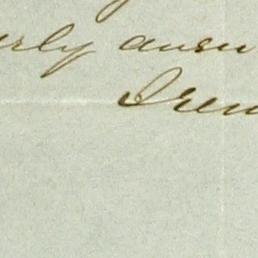 erly answ
Iren